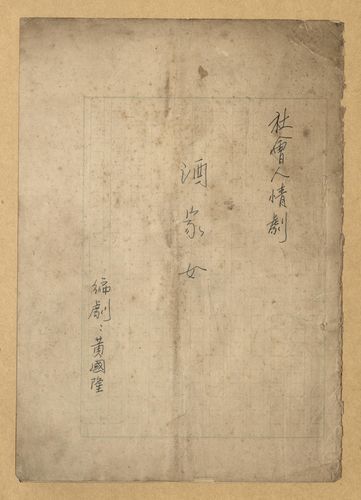 社會人情劇
酒家女
編劇：黃國隆